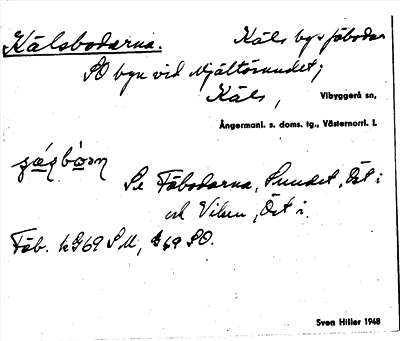 Kälsbodarna. Käls bys fäbodar
SO byn vid Mjältösundet;
Käls, Vibyggerå sn,
Ångermanl. s. doms. tg., Västernorrl. l.
Se Fäbodarna, Sundet, Öst i
och Viken, Öst i.
Fäb. kG69 SU, SO.
Sven Hiller 1948